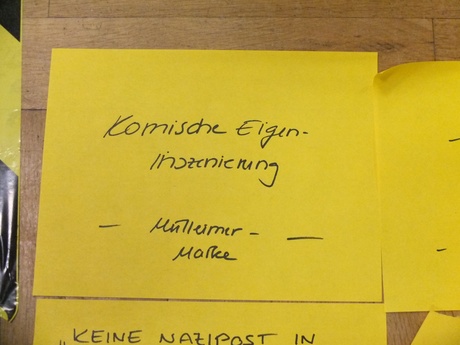 Komische Eigen-
Inszenierung
— Mülleimer- —
Marke
„KEINE NAZIPOST IN